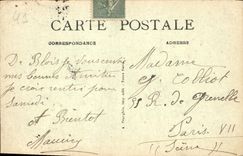 CARTE POSTALE
CORRESPONDANCE
ADRESSE
De Blois je vous envoie
mes bonnes Amitiés
je crois rentré pour
samedi
A Bientot
Maurice
Madame
G. Colliot
35 R. de Grenelle
Paris VII
(Seine)